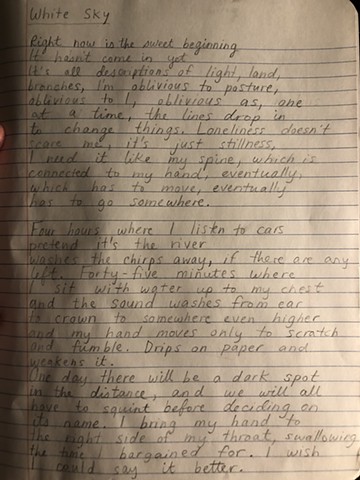 White Sky
Right now is the sweet beginning
It hasn't come in yet
It's all descriptions of light, land,
branches, I'm oblivious to posture,
oblivious to I, oblivious as, one
at a time, the lines drop in
to change things. Loneliness doesn't
scare me, it's just stillness,
I need it like my spine, which is
connected to my hand, eventually,
which has to move, eventually
has to go somewhere.
Four hours where I listen to cars
pretend it's the river
washes the chirps away, if there are any
left. Forty-five minutes where
I sit with water up to my chest
and the sound washes from ear
to crown to somewhere even higher
and my hand moves only to scratch
and fumble. Drips on paper and
weakens it.
One day there will be a dark spot
in the distance, and we will all
have to squint before deciding on
its name. I bring my hand to
the right side of my throat, swallowing
the time I bargained for. I wish
I could say it better.